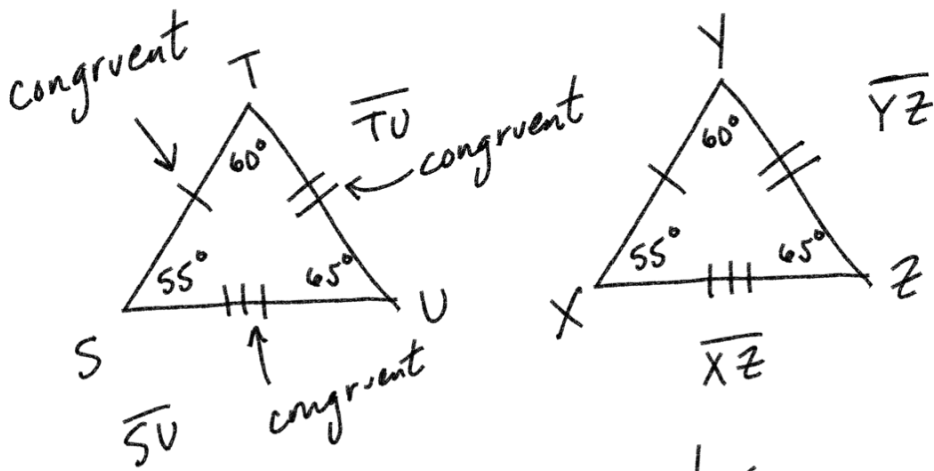 congruent
T
TU
congruent
60°
55°
65°
S
U
SU
congruent
Y
YZ
60°
55°
65°
X
Z
XZ